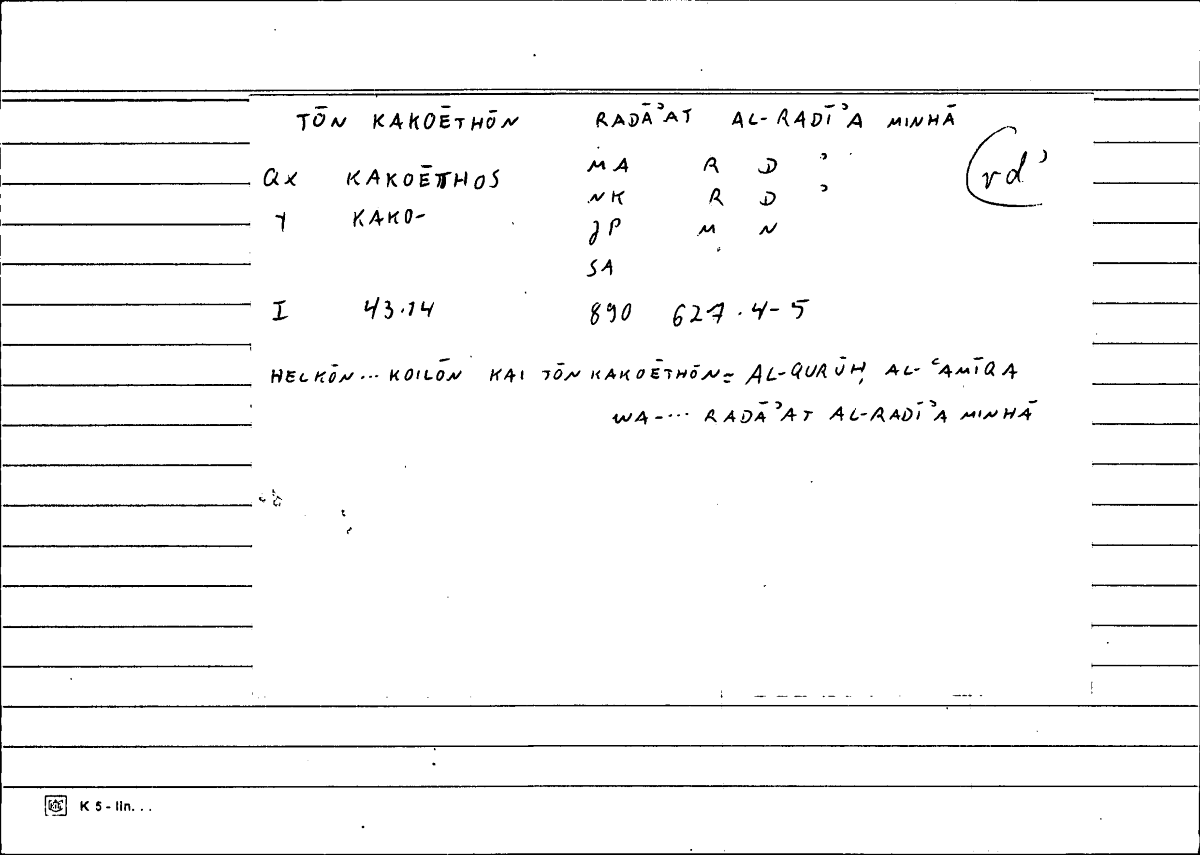 TŌN KAKOĒTHŌN RADĀʾAT AL-RADĪʾA MINHĀ
QX KAKOĒTHOS MA R D ʾ rdʾ
Y KAKO- NK R D ʾ
JP M N
SA
I 43.14 890 627.4-5
HELKŌN... KOILŌN KAI TŌN KAKOĒTHŌN = AL-QURŪḤ AL-ʿAMĪQA
WA-... RADĀʾAT AL-RADĪʾA MINHĀ
K 5 - lin. . .